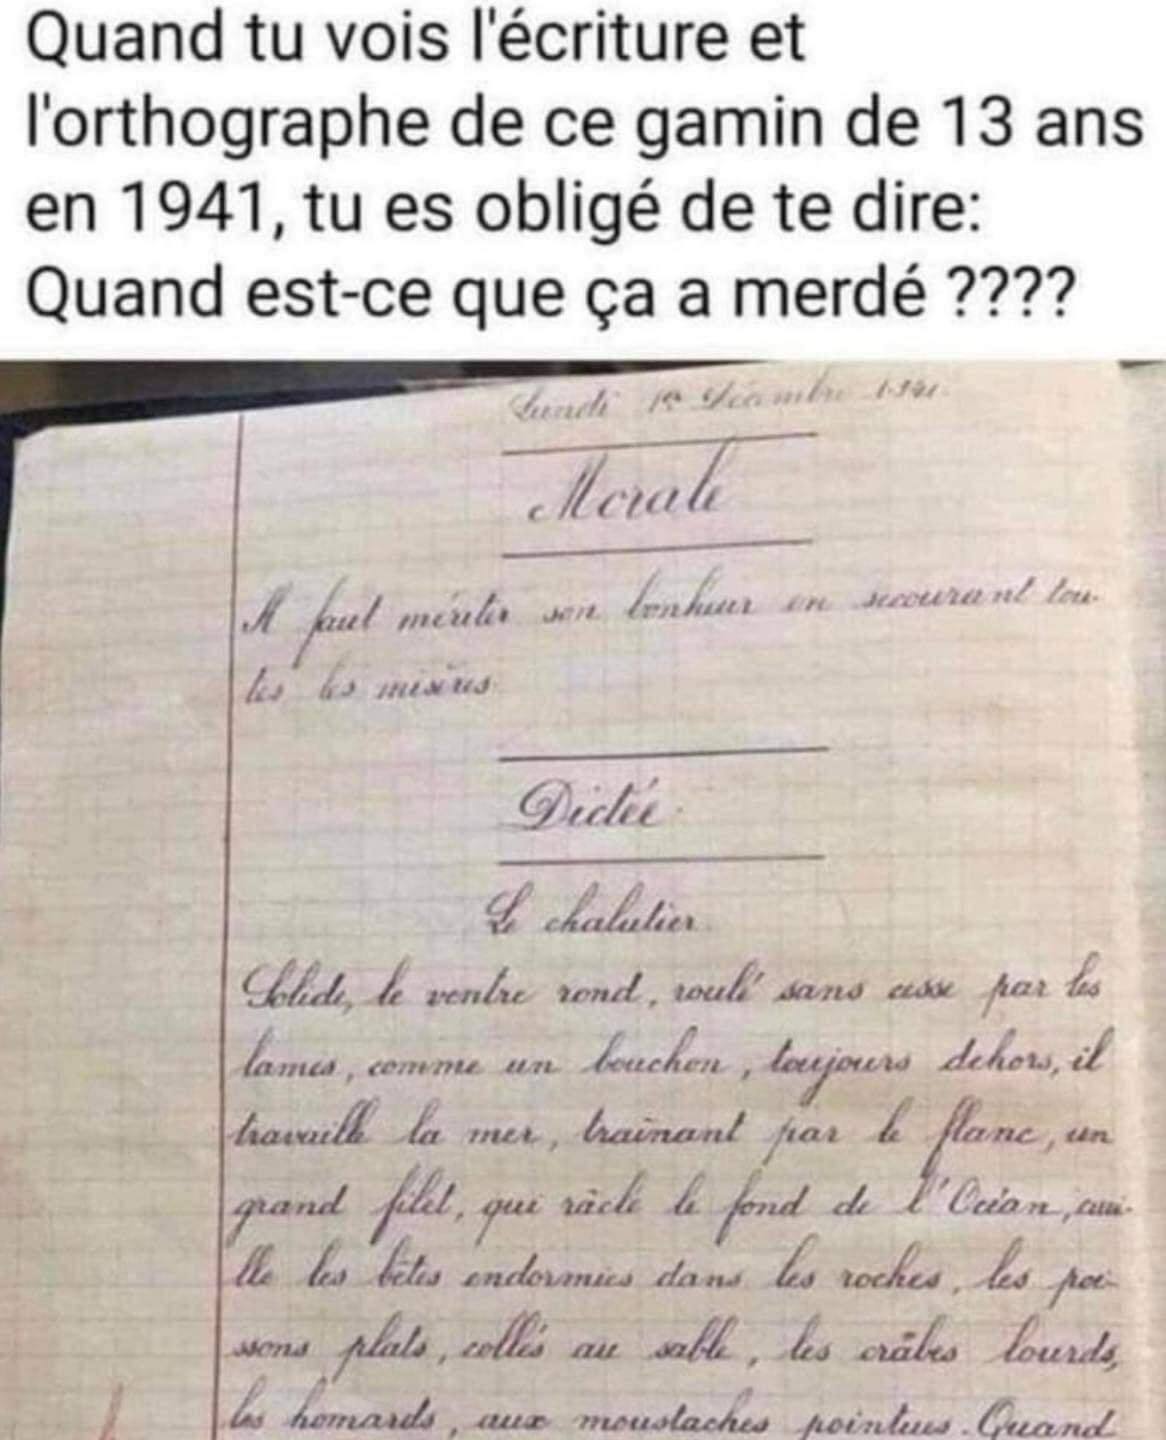 Quand tu vois l'écriture et
l'orthographe de ce gamin de 13 ans
en 1941, tu es obligé de te dire:
Quand est-ce que ça a merdé ????
Lundi 1er Décembre 1941.
Morale
Il faut mériter son bonheur en secourant tou-
tes les misères.
Dictée.
Le chalutier.
Solide, le ventre rond, roulé sans cesse par les
lames, comme un bouchon, toujours dehors, il
travaille la mer, traînant par le flanc, un
grand filet, qui râcle le fond de l'Océan, cuei-
lle les bêtes endormies dans les roches, les poi-
ssons plats, collés au sable, les crâbes lourds,
les homards, aux moustaches pointues. Quand